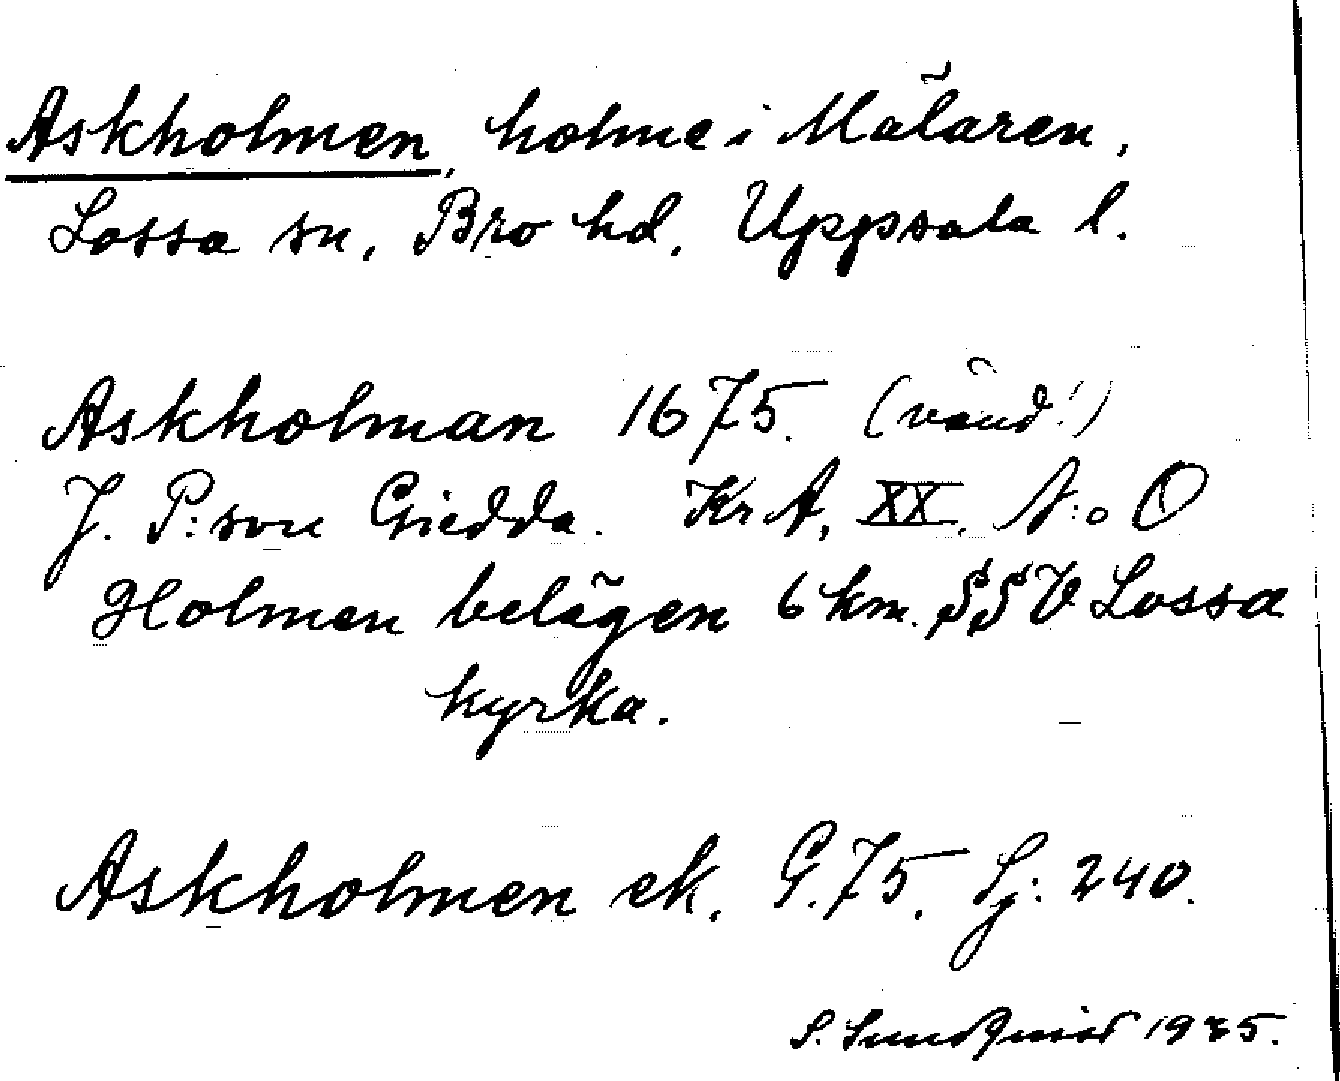 Askholmen, holme i Mälaren,
Lossa sn, Bro hd, Uppsala l.
Askholman 1675. (vänd!)
J. P:son Giedda. KrA, XX. N:o O
Holmen belägen 6 km. SSV Lossa
kyrka.
Askholmen ek. G.75. Lj: 240.
S. Sundquist 1935.